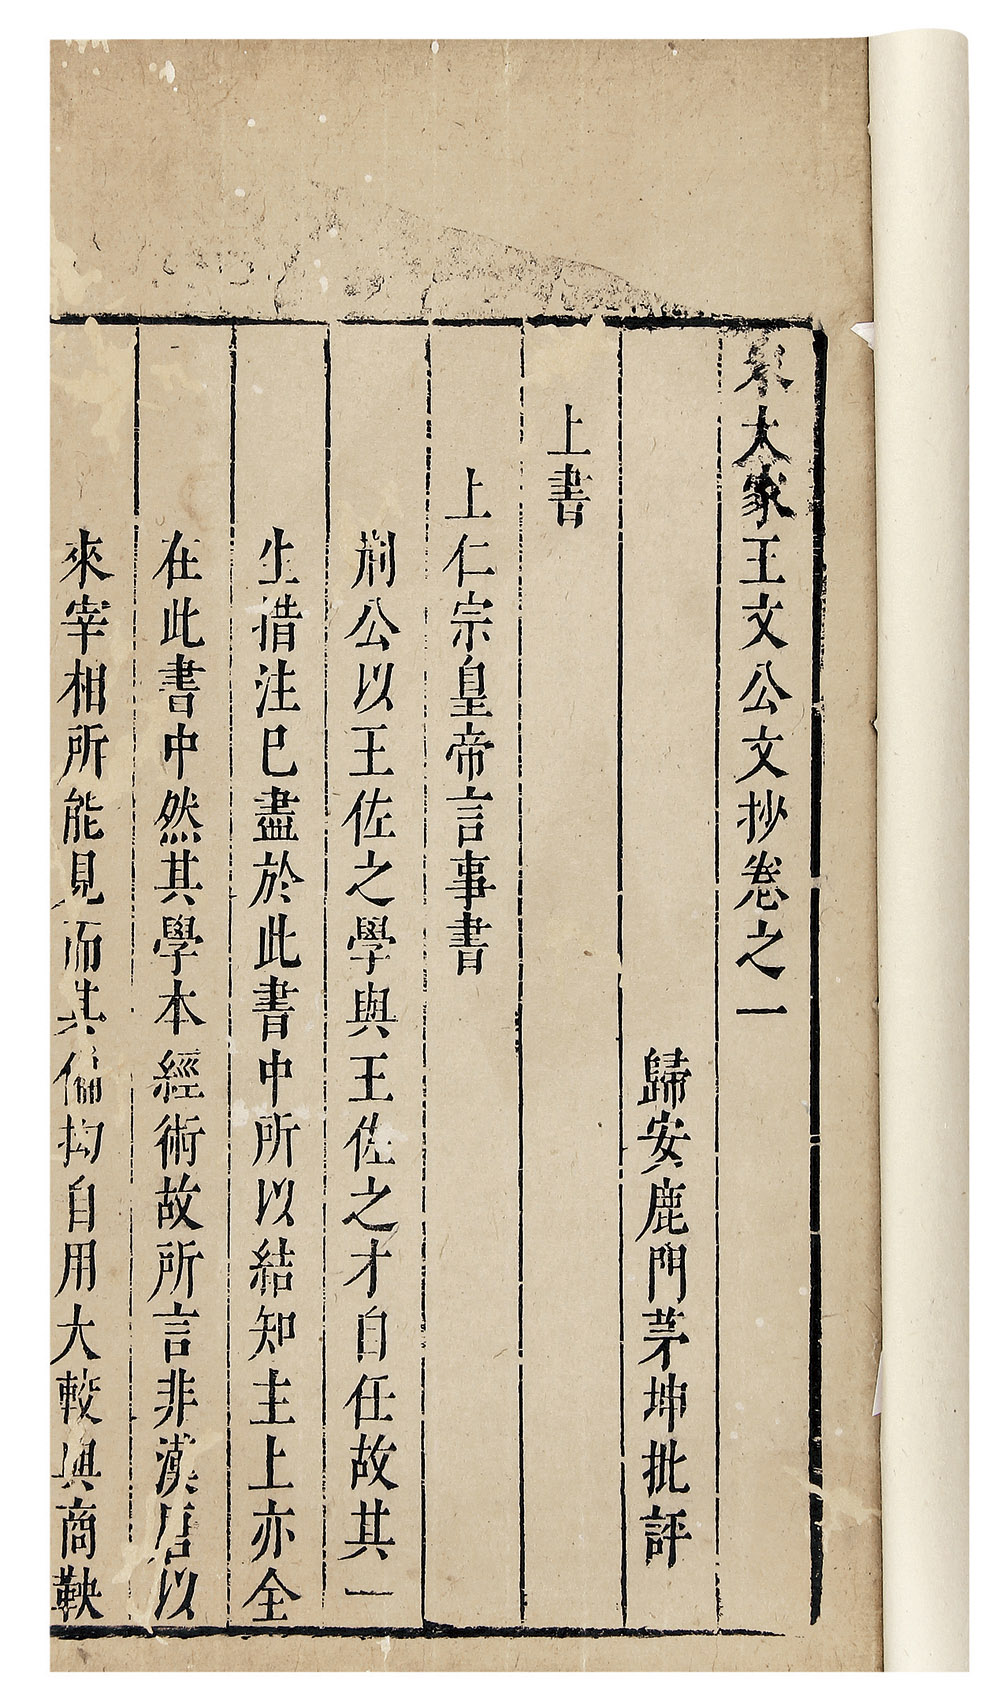 宋大家王文公文抄卷之一
歸安鹿門茅坤批評
上書
上仁宗皇帝言事書
荆公以王佐之學與王佐之才自任故其一
生措注已盡於此書中所以結知主上亦全
在此書中然其學本經術故所言非漢唐以
來宰相所能見而其偏拗自用大較與商鞅